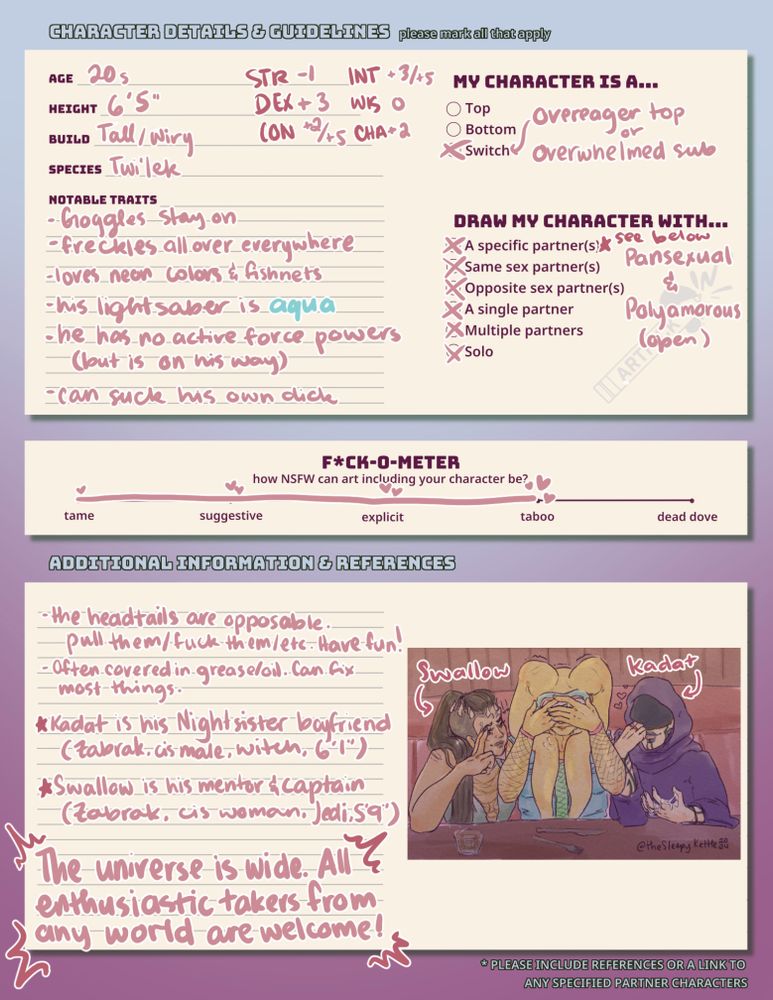 CHARACTER DETAILS & GUIDELINES please mark all that apply
AGE 20s
HEIGHT 6'5"
BUILD Tall/Wiry
SPECIES Twi'lek
STR -1 INT +3/+5
DEX +3 WIS 0
CON +2/+5 CHA +2
NOTABLE TRAITS
- Goggles stay on
- freckles all over everywhere
- loves neon colors & fishnets
- his lightsaber is aqua
- he has no active force powers
(but is on his way)
- can suck his own dick
MY CHARACTER IS A...
Top
Bottom
Switch
Overeager top
or
overwhelmed sub
DRAW MY CHARACTER WITH...
A specific partner(s) * see below
Same sex partner(s)
Opposite sex partner(s)
A single partner
Multiple partners
Solo
Pansexual
&
Polyamorous
(open)
F*CK-O-METER
how NSFW can art including your character be?
tame suggestive explicit taboo dead dove
ADDITIONAL INFORMATION & REFERENCES
- the headtails are opposable.
pull them/fuck them/etc. Have fun!
- Often covered in grease/oil. Can fix
most things.
* Kadat is his Nightsister boyfriend
(Zabrak, cis male, witch, 6'1")
* Swallow is his mentor & captain
(Zabrak, cis woman, Jedi, 5'9")
The universe is wide. All
enthusiastic takers from
any world are welcome!
Swallow
Kadat
@thesleepykettle
* PLEASE INCLUDE REFERENCES OR A LINK TO
ANY SPECIFIED PARTNER CHARACTERS